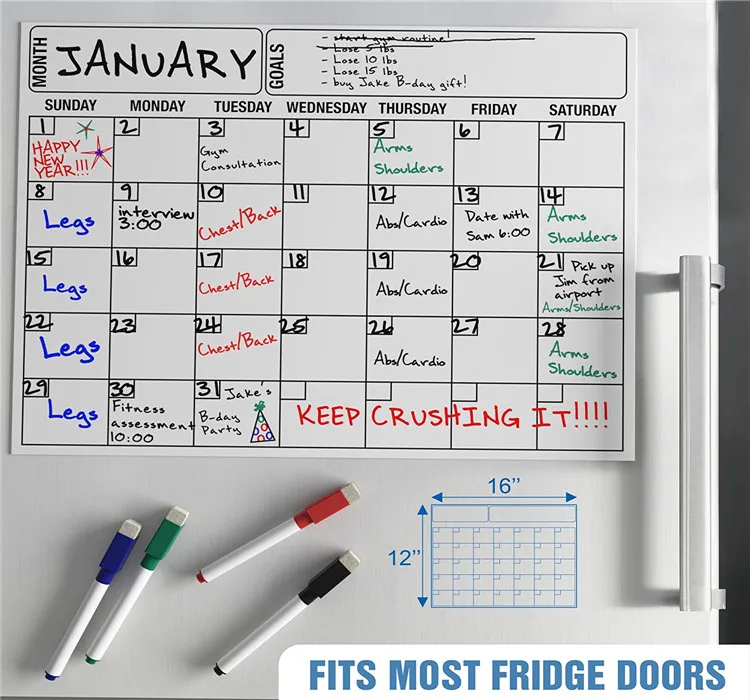 MONTH
JANUARY
GOALS
- start gym routine!
- Lose 5 lbs
- Lose 10 lbs
- Lose 15 lbs
- buy Jake B-day gift!
SUNDAY MONDAY TUESDAY WEDNESDAY THURSDAY FRIDAY SATURDAY
1 2 3 4 5 6 7
HAPPY
NEW
YEAR!!!
Gym
Consultation
Arms
Shoulders
8 9 10 11 12 13 14
Legs
interview
3:00
Chest/Back
Abs/Cardio
Date with
Sam 6:00
Arms
Shoulders
15 16 17 18 19 20 21
Legs
Chest/Back
Abs/Cardio
Pick up
Jim from
airport
Arms/Shoulders
22 23 24 25 26 27 28
Legs
Chest/Back
Abs/Cardio
Arms
Shoulders
29 30 31
Legs
Fitness
assessment
10:00
Jake's
B-day
Party
KEEP CRUSHING IT!!!!
16"
12"
FITS MOST FRIDGE DOORS